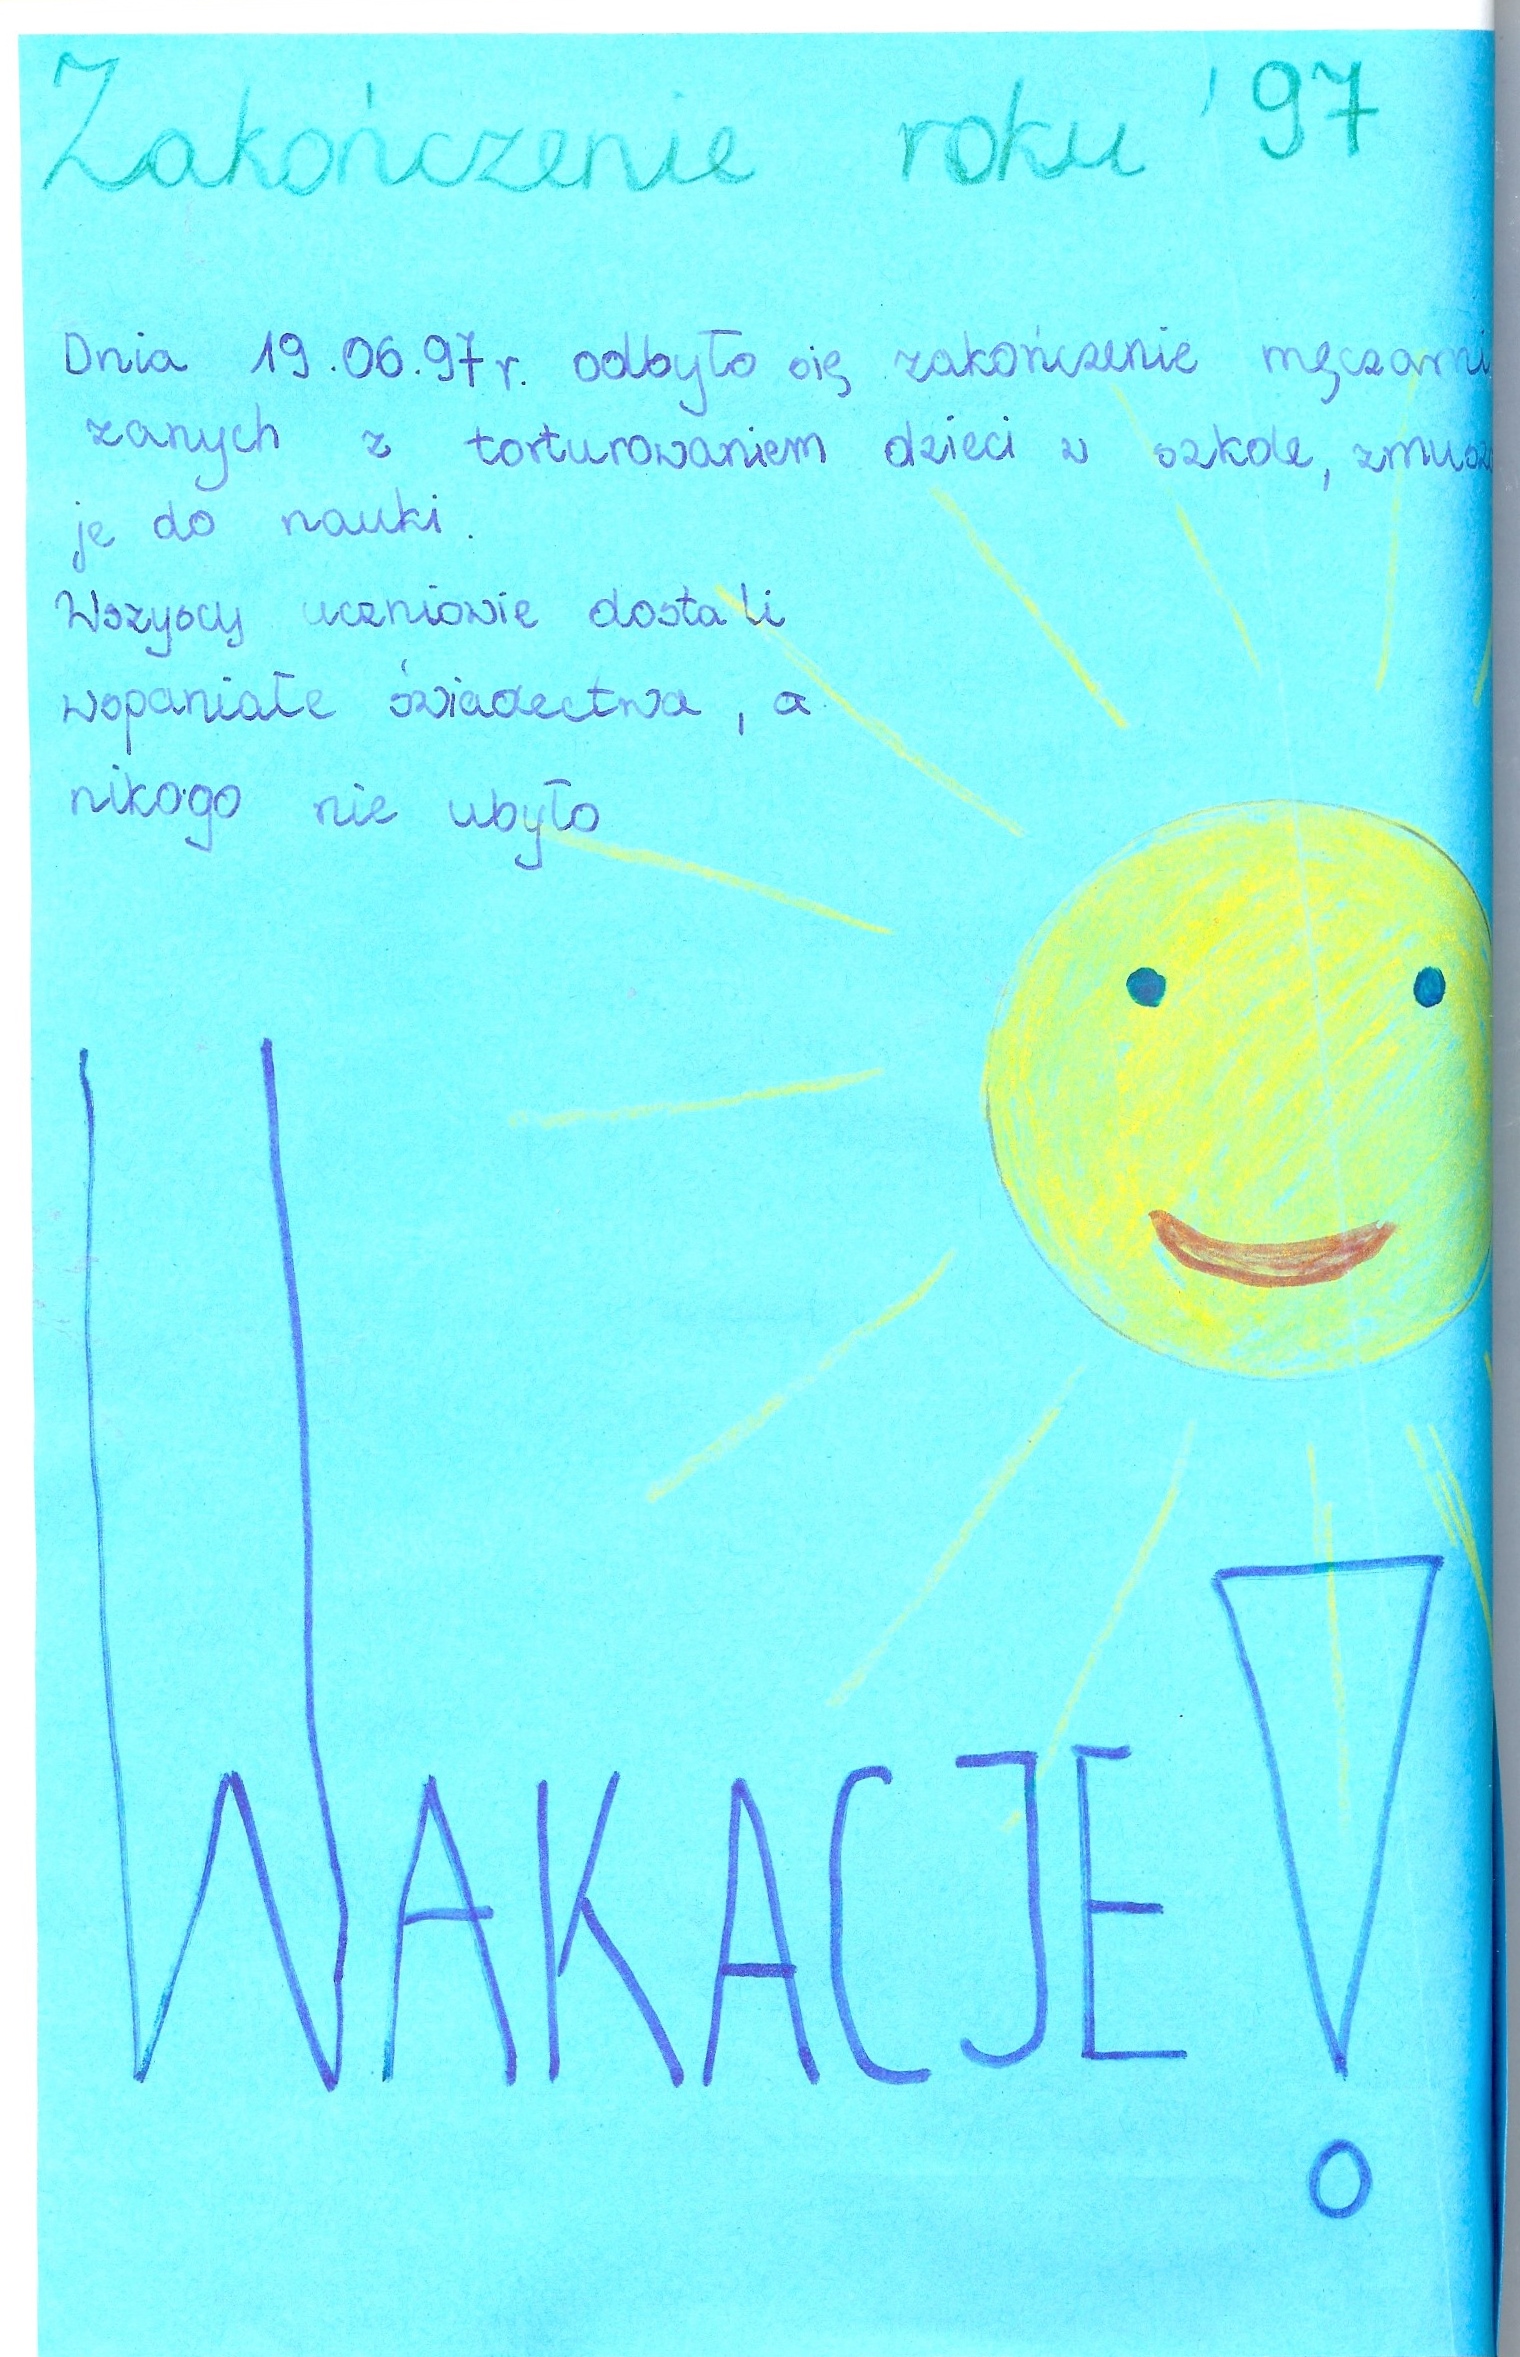 Zakończenie roku '97
Dnia 19.06.97r. odbyło się zakończenie męczarni
zanych z torturowaniem dzieci w szkole, zmusz
je do nauki.
Wszyscy uczniowie dostali
wspaniałe świadectwa, a
nikogo nie ubyło
WAKACJE!